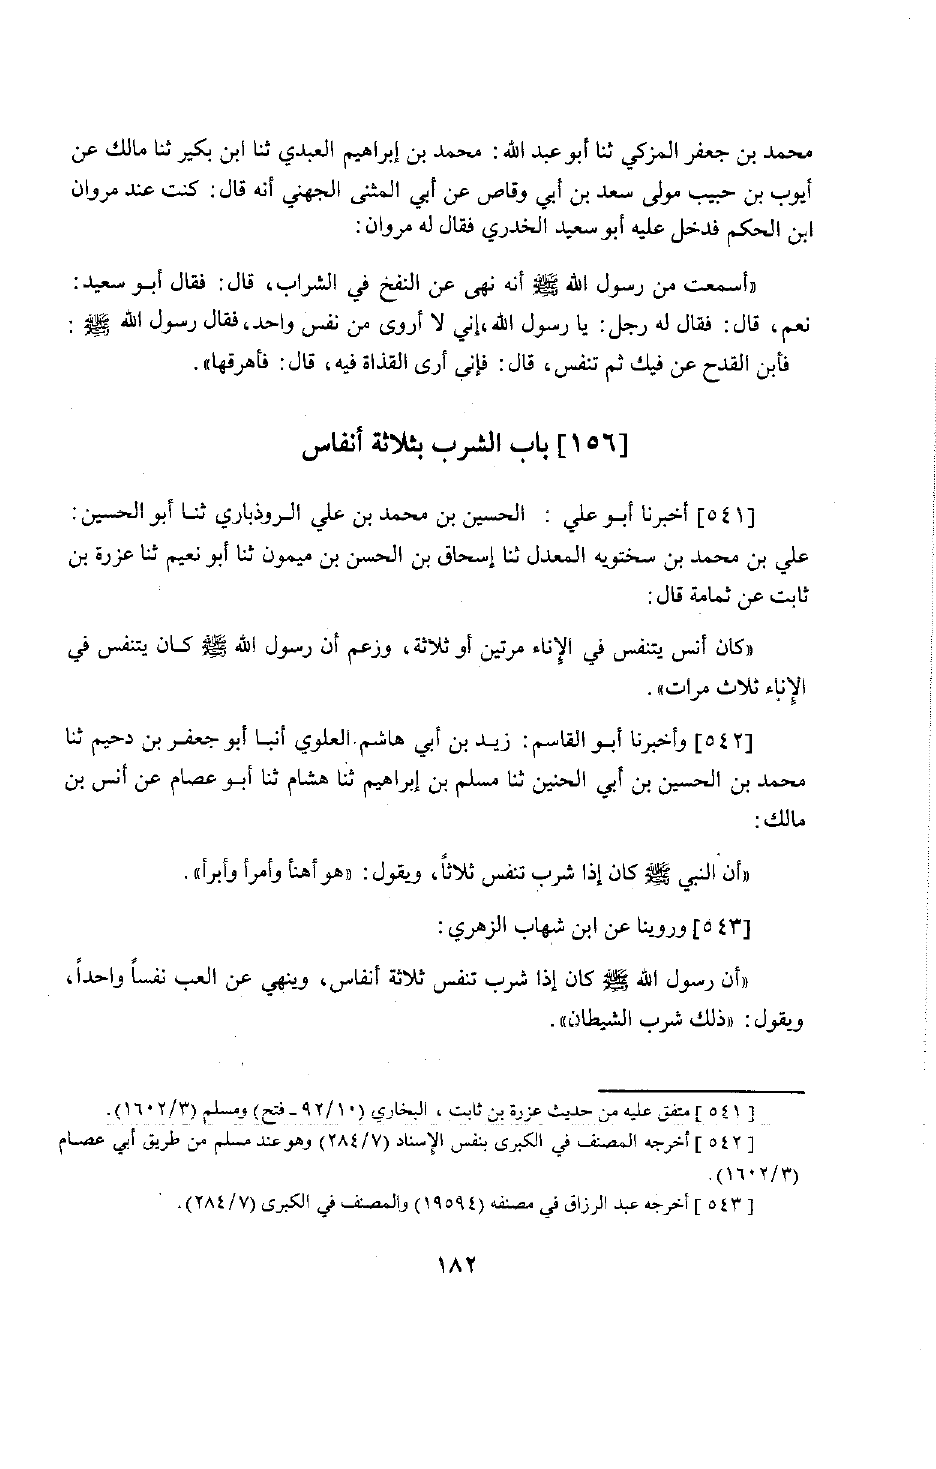 محمد بن جعفر المزكي ثنا أبو عبد الله: محمد بن إبراهيم العبدي ثنا ابن بكير ثنا مالك عن
أيوب بن حبيب مولى سعد بن أبي وقاص عن أبي المثنى الجهني أنه قال: كنت عند مروان
ابن الحكم فدخل عليه أبو سعيد الخدري فقال له مروان:
«أسمعت من رسول الله ﷺ أنه نهى عن النفخ في الشراب، قال: فقال أبو سعيد:
نعم، قال: فقال له رجل: يا رسول الله،إني لا أروى من نفس واحد،فقال رسول الله ﷺ :
فأبن القدح عن فيك ثم تنفس، قال: فإني أرى القذاة فيه، قال: فأهرقها».
[١٥٦] باب الشرب بثلاثة أنفاس
[٥٤١] أخبرنا أبو علي : الحسين بن محمد بن علي الروذباري ثنا أبو الحسين:
علي بن محمد بن سختويه المعدل ثنا إسحاق بن الحسن بن ميمون ثنا أبو نعيم ثنا عزرة بن
ثابت عن ثمامة قال:
«كان أنس يتنفس في الإناء مرتين أو ثلاثة، وزعم أن رسول الله ﷺ كان يتنفس في
الإناء ثلاث مرات».
[٥٤٢] وأخبرنا أبو القاسم: زيد بن أبي هاشم العلوي أنبا أبو جعفر بن دحيم ثنا
محمد بن الحسين بن أبي الحنين ثنا مسلم بن إبراهيم ثنا هشام ثنا أبو عصام عن أنس بن
مالك:
«أن النبي ﷺ كان إذا شرب تنفس ثلاثاً، ويقول: «هو أهنأ وأمرأ وأبرأ».
[٥٤٣] وروينا عن ابن شهاب الزهري:
«أن رسول الله ﷺ كان إذا شرب تنفس ثلاثة أنفاس، وينهي عن العب نفساً واحداً،
ويقول: «ذلك شرب الشيطان».
[٥٤١ ] متفق عليه من حديث عزرة بن ثابت ، البخاري (٩٢/١٠ـ فتح) ومسلم (١٦٠٢/٣).
[٥٤٢ ] أخرجه المصنف في الكبرى بنفس الإسناد (٢٨٤/٧) وهو عند مسلم من طريق أبي عصام
(١٦٠٢/٣).
[٥٤٣ ] أخرجه عبد الرزاق في مصنفه (١٩٥٩٤) والمصنف في الكبرى (٢٨٤/٧).
١٨٢